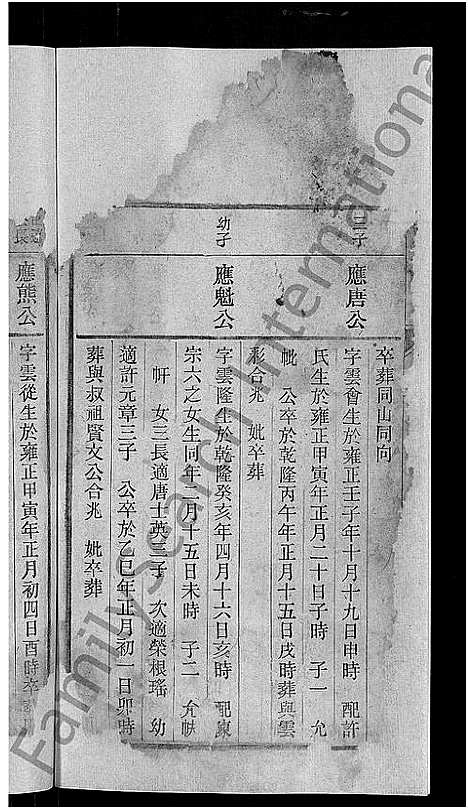 卒葬同山同向
三子
應唐公
字雲會生於雍正壬子年十月十九日申時 配許
氏生於雍正甲寅年正月二十日子時 子一 允
帆 公卒於乾隆丙午年正月十五日戌時葬與雲
彩合兆 妣卒葬
幼子
應魁公
字雲隆生於乾隆癸亥年四月十六日亥時 配東
宗六之女生同年二月十五日未時 子二 允帙
帡 女三長適唐士英三子 次適榮根瑤 幼
適許元章三子 公卒於乙巳年正月初一日卯時
葬與叔祖賢文公合兆 妣卒葬
長
應熊公
字雲從生於雍正甲寅年正月初四日酉時卒
FamilySearch International